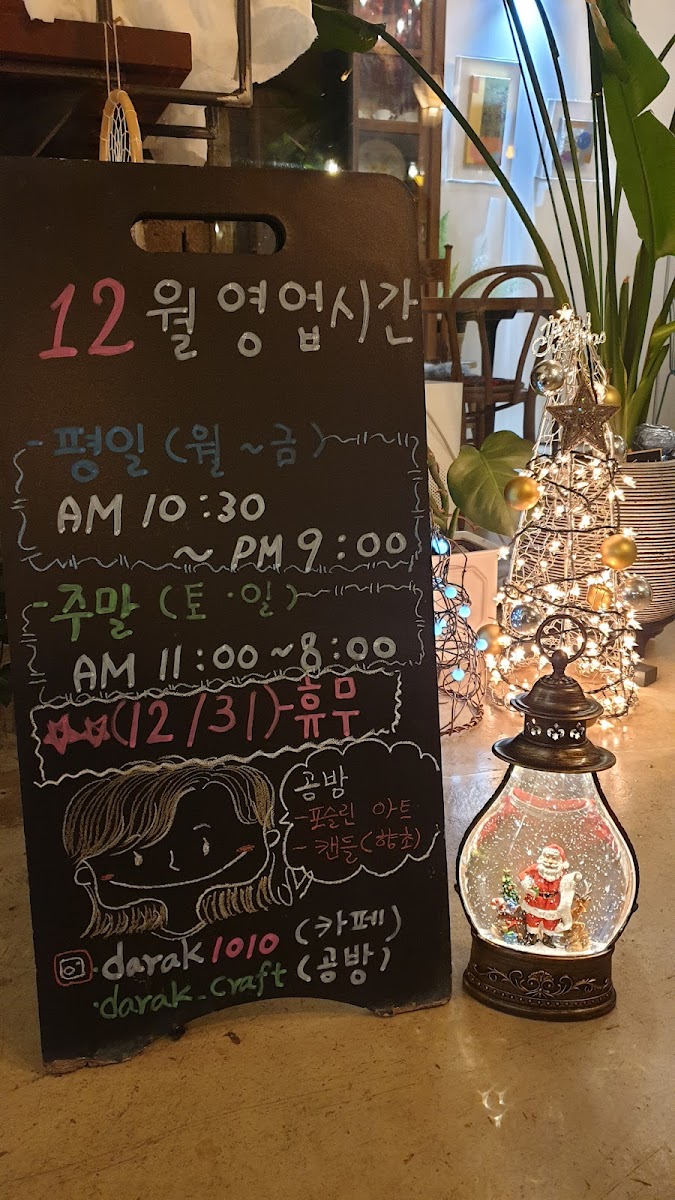 12월 영업시간
- 평일 (월 ~ 금)
AM 10:30
~ PM 9:00
- 주말 (토·일)
AM 11:00 ~ 8:00
(12/31) 휴무
공방
- 포슬린 아트
- 캔들(향초)
darak1010 (카페)
·darak_craft (공방)